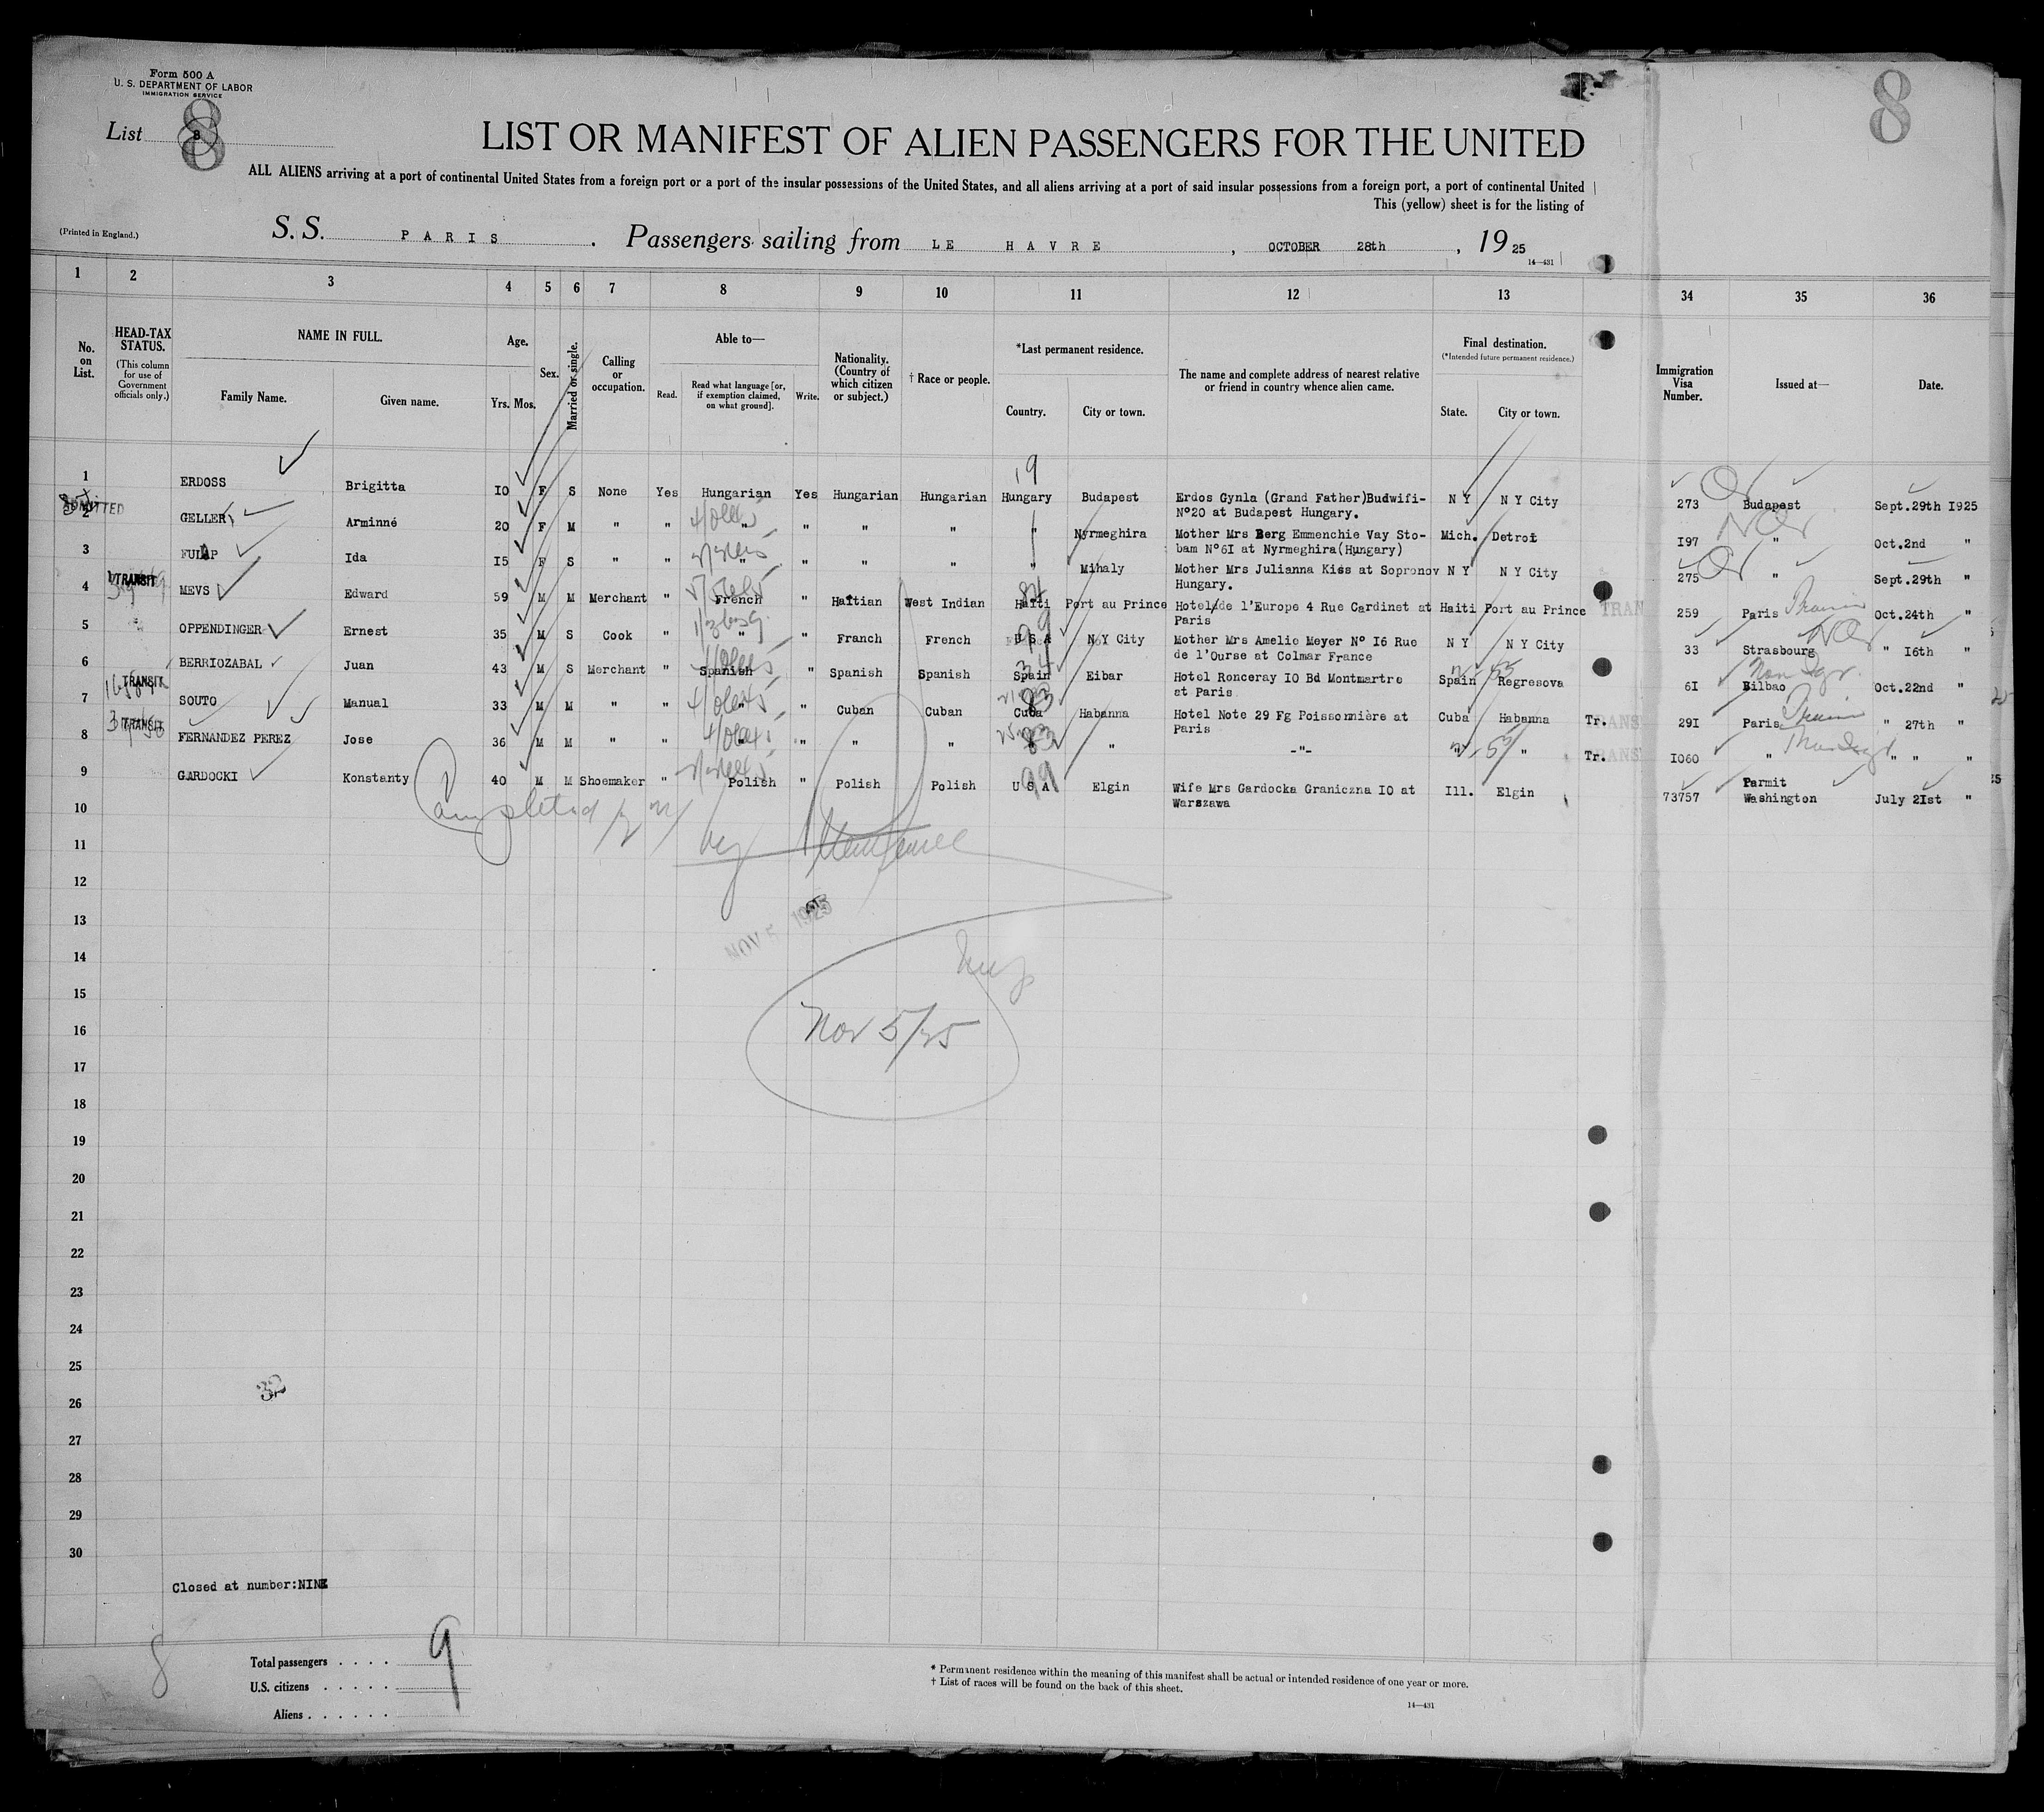 Form 500 A
U. S. DEPARTMENT OF LABOR
IMMIGRATION SERVICE
List 8
8
8
LIST OR MANIFEST OF ALIEN PASSENGERS FOR THE UNITED
ALL ALIENS arriving at a port of continental United States from a foreign port or a port of the insular possessions of the United States, and all aliens arriving at a port of said insular possessions from a foreign port, a port of continental United
This (yellow) sheet is for the listing of
(Printed in England.)
S. S. PARIS . Passengers sailing from LE HAVRE , OCTOBER 28th , 19 25
14—431
1 2 3 4 5 6 7 8 9 10 11 12 13 34 35 36
No. on List.
HEAD-TAX STATUS. (This column for use of Government officials only.)
NAME IN FULL. Family Name. Given name.
Age. Yrs. Mos.
Sex.
Married or single.
Calling or occupation.
Able to— Read. Read what language [or, if exemption claimed, on what ground]. Write.
Nationality. (Country of which citizen or subject.)
† Race or people.
*Last permanent residence. Country. City or town.
The name and complete address of nearest relative or friend in country whence alien came.
Final destination. (*Intended future permanent residence.) State. City or town.
Immigration Visa Number.
Issued at—
Date.
1 ERDOSS Brigitta 10 F S None Yes Hungarian Yes Hungarian Hungarian Hungary Budapest Erdos Gynla (Grand Father)Budwifi- N Y N Y City 273 Budapest Sept.29th 1925
N°20 at Budapest Hungary.
ADMITTED
2 GELLER Arminné 20 F M " " " " " " " Nyrmeghira Mother Mrs Berg Emmenchie Vay Sto- Mich. Detroi 197 " Oct.2nd "
bam N°61 at Nyrmeghira(Hungary)
3 FULAP Ida 15 F S " " " " " " " Mihaly Mother Mrs Julianna Kiss at Sopronov N Y N Y City 275 " Sept.29th "
Hungary.
TRANSIT
4 MEVS Edward 59 M M Merchant " French " Haitian West Indian Haiti Port au Prince Hotel de l'Europe 4 Rue Cardinet at Haiti Port au Prince 259 Paris Oct.24th "
Paris
5 OPPENDINGER Ernest 35 M S Cook " " " Franch French U S A N Y City Mother Mrs Amelie Meyer N° 16 Rue N Y N Y City 33 Strasbourg " 16th "
de l'Ourse at Colmar France
6 BERRIOZABAL Juan 43 M S Merchant " Spanish " Spanish Spanish Spain Eibar Hotel Ronceray 10 Bd Montmartre Spain Regresova 61 Bilbao Oct.22nd "
at Paris
TRANSIT
7 SOUTO Manual 33 M M " " " " Cuban Cuban Cuba Habanna Hotel Note 29 Fg Poissonnière at Cuba Habanna Tr. 291 Paris " 27th "
Paris
TRANSIT
8 FERNANDEZ PEREZ Jose 36 M M " " " " " " " -"- " " Tr. 1060 " " " "
9 GARDOCKI Konstanty 40 M M Shoemaker " Polish " Polish Polish U S A Elgin Wife Mrs Gardocka Graniczna 10 at Ill. Elgin 73757 Permit Washington July 21st "
Warszawa
10
Completed
by
11
12
13
NOV 5 1925
14
15
16
Nov 5/25
17
18
19
20
21
22
23
24
25
26
27
28
29
30
Closed at number:NINE
8
Total passengers . . . . 9
U.S. citizens . . . . .
Aliens . . . . . .
* Permanent residence within the meaning of this manifest shall be actual or intended residence of one year or more.
† List of races will be found on the back of this sheet.
14—431